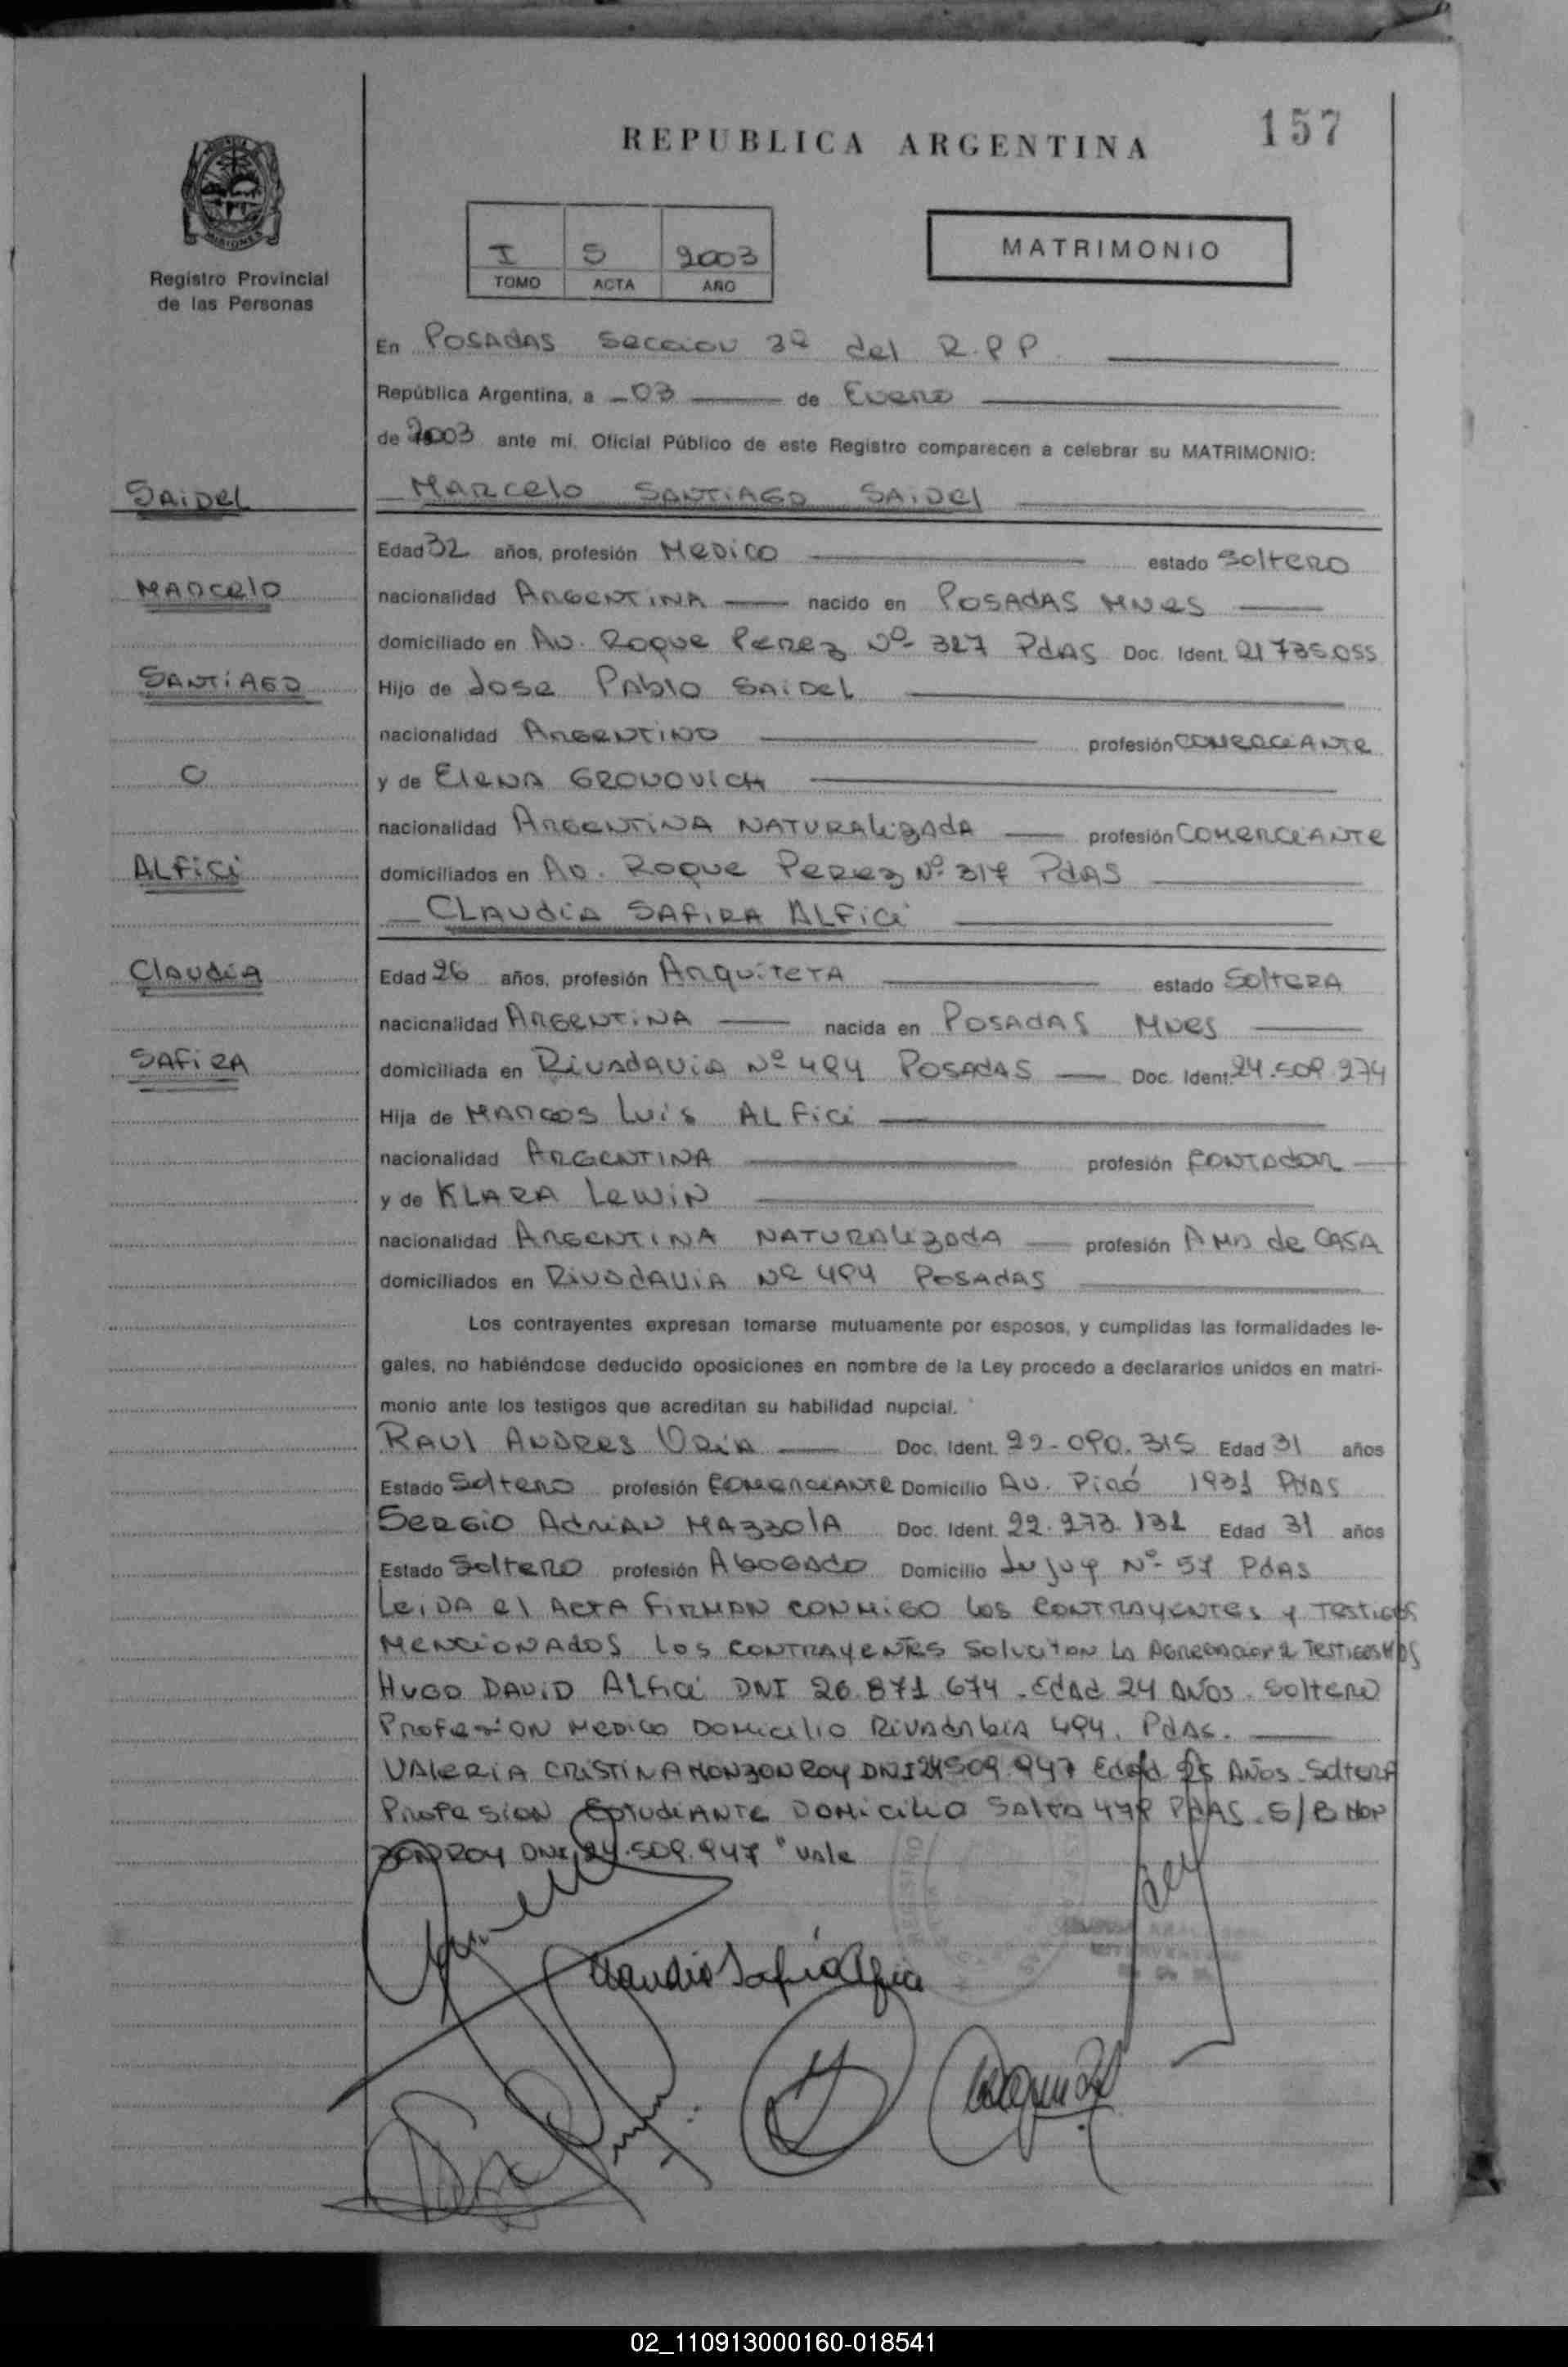 157
REPUBLICA ARGENTINA
MISIONES
Registro Provincial
de las Personas
I S 2003
TOMO ACTA AÑO
MATRIMONIO
En POSADAS Seccion 3ª del R.P.P.
República Argentina, a 03 de Enero
de 2003 ante mí, Oficial Público de este Registro comparecen a celebrar su MATRIMONIO:
SAIDEL
MARCELO SANTIAGO SAIDEL
Edad 32 años, profesión MEDICO estado SOLTERO
MARCELO
nacionalidad ARGENTINA nacido en POSADAS MNES
domiciliado en Av. Roque Perez Nº 327 PdAS Doc. Ident. 21735.055
SANTIAGO
Hijo de Jose Pablo SAIDEL
nacionalidad ARGENTINO profesión COMERCIANTE
C
y de ELENA GRONOVICH
nacionalidad ARGENTINA NATURALIZADA profesión COMERCIANTE
ALFICI
domiciliados en Av. Roque Perez Nº 317 PdAS
CLAUDIA SAFIRA ALFICI
CLAUDIA
Edad 26 años, profesión ARQUITETA estado SOLTERA
nacionalidad ARGENTINA nacida en POSADAS MNES
SAFIRA
domiciliada en RIVADAVIA Nº 494 POSADAS Doc. Ident. 24.509.274
Hija de MARCOS LUIS ALFICI
nacionalidad ARGENTINA profesión CONTADOR
y de KLARA LEWIN
nacionalidad ARGENTINA NATURALIZADA profesión AMA de CASA
domiciliados en RIVADAVIA Nº 494 POSADAS
Los contrayentes expresan tomarse mutuamente por esposos, y cumplidas las formalidades le-
gales, no habiéndose deducido oposiciones en nombre de la Ley procedo a declararlos unidos en matri-
monio ante los testigos que acreditan su habilidad nupcial.
RAUL ANDRES Doc. Ident. 22-090.315 Edad 31 años
Estado SOLTERO profesión COMERCIANTE Domicilio AV. 1931 PDAS
SERGIO ADRIAN MAZZOLA Doc. Ident. 22.273.131 Edad 31 años
Estado SOLTERO profesión ABOGADO Domicilio Jujuy Nº 57 PdAS
LEIDA el ACTA FIRMAN CONMIGO LOS CONTRAYENTES y TESTIGOS
MENCIONADOS LOS CONTRAYENTES LA 2 TESTIGOS MAS
HUGO DAVID ALFICI DNI 26.871.674 - EDAD 24 AÑOS - SOLTERO
PROFESION MEDICO DOMICILIO RIVADABIA 494. PdAS.
VALERIA CRISTINA MONZON ROY DNI 24509.947 Edad 25 AÑOS - SOLTERA
PROFESION ESTUDIANTE DOMICILIO SALTA PDAS. S/B MON
ZON ROY DNI 24.509.947 " Vale
Claudia Safira Alfici
02_110913000160-018541